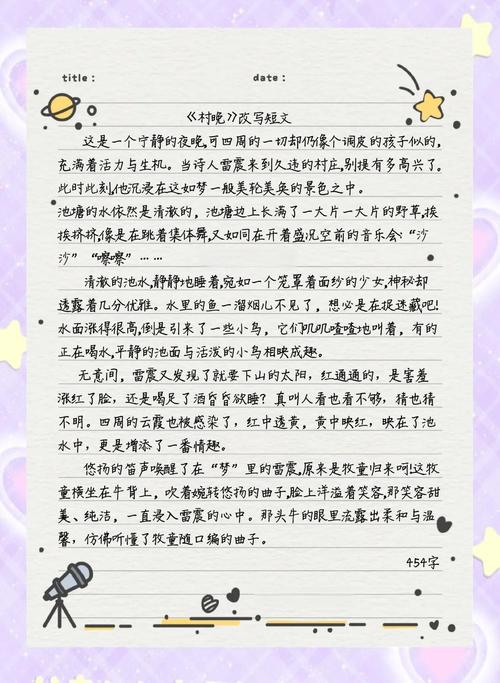 title： date：
《村晚》改写短文
这是一个宁静的夜晚,可四周的一切却仍像个调皮的孩子似的,
充满着活力与生机。当诗人雷震来到久违的村庄,别提有多高兴了.
此时此刻,他沉浸在这如梦一般美轮美奂的景色之中.
池塘的水依然是清澈的，池塘边上长满了一大片一大片的野草,挨
挨挤挤,像是在跳着集体舞,又如同在开着盛况空前的音乐会:“沙
沙”“嚓嚓”……
清澈的池水,静静地睡着,宛如一个笼罩着面纱的少女,神秘却
透露着几分优雅。水里的鱼一溜烟儿不见了，想必是在捉迷藏吧!
水面涨得很高,倒是引来了一些小鸟，它们叽叽喳喳地叫着，有的
正在喝水,平静的池面与活泼的小鸟相映成趣。
无意间，雷震又发现了就要下山的太阳，红通通的，是害羞
涨红了脸，还是喝足了酒昏昏欲睡？真叫人看也看不够，猜也猜
不明。四周的云霞也被感染了，红中透黄，黄中映红，映在了池
水中，更是增添了一番情趣。
悠扬的笛声唤醒了在“梦”里的雷震,原来是牧童归来呵!这牧
童横坐在牛背上，吹着婉转悠扬的曲子,脸上洋溢着笑容,那笑容甜
美、纯洁，一直浸入雷震的心中。那头牛的眼里流露出柔和与温
馨，仿佛听懂了牧童随口编的曲子。
454字